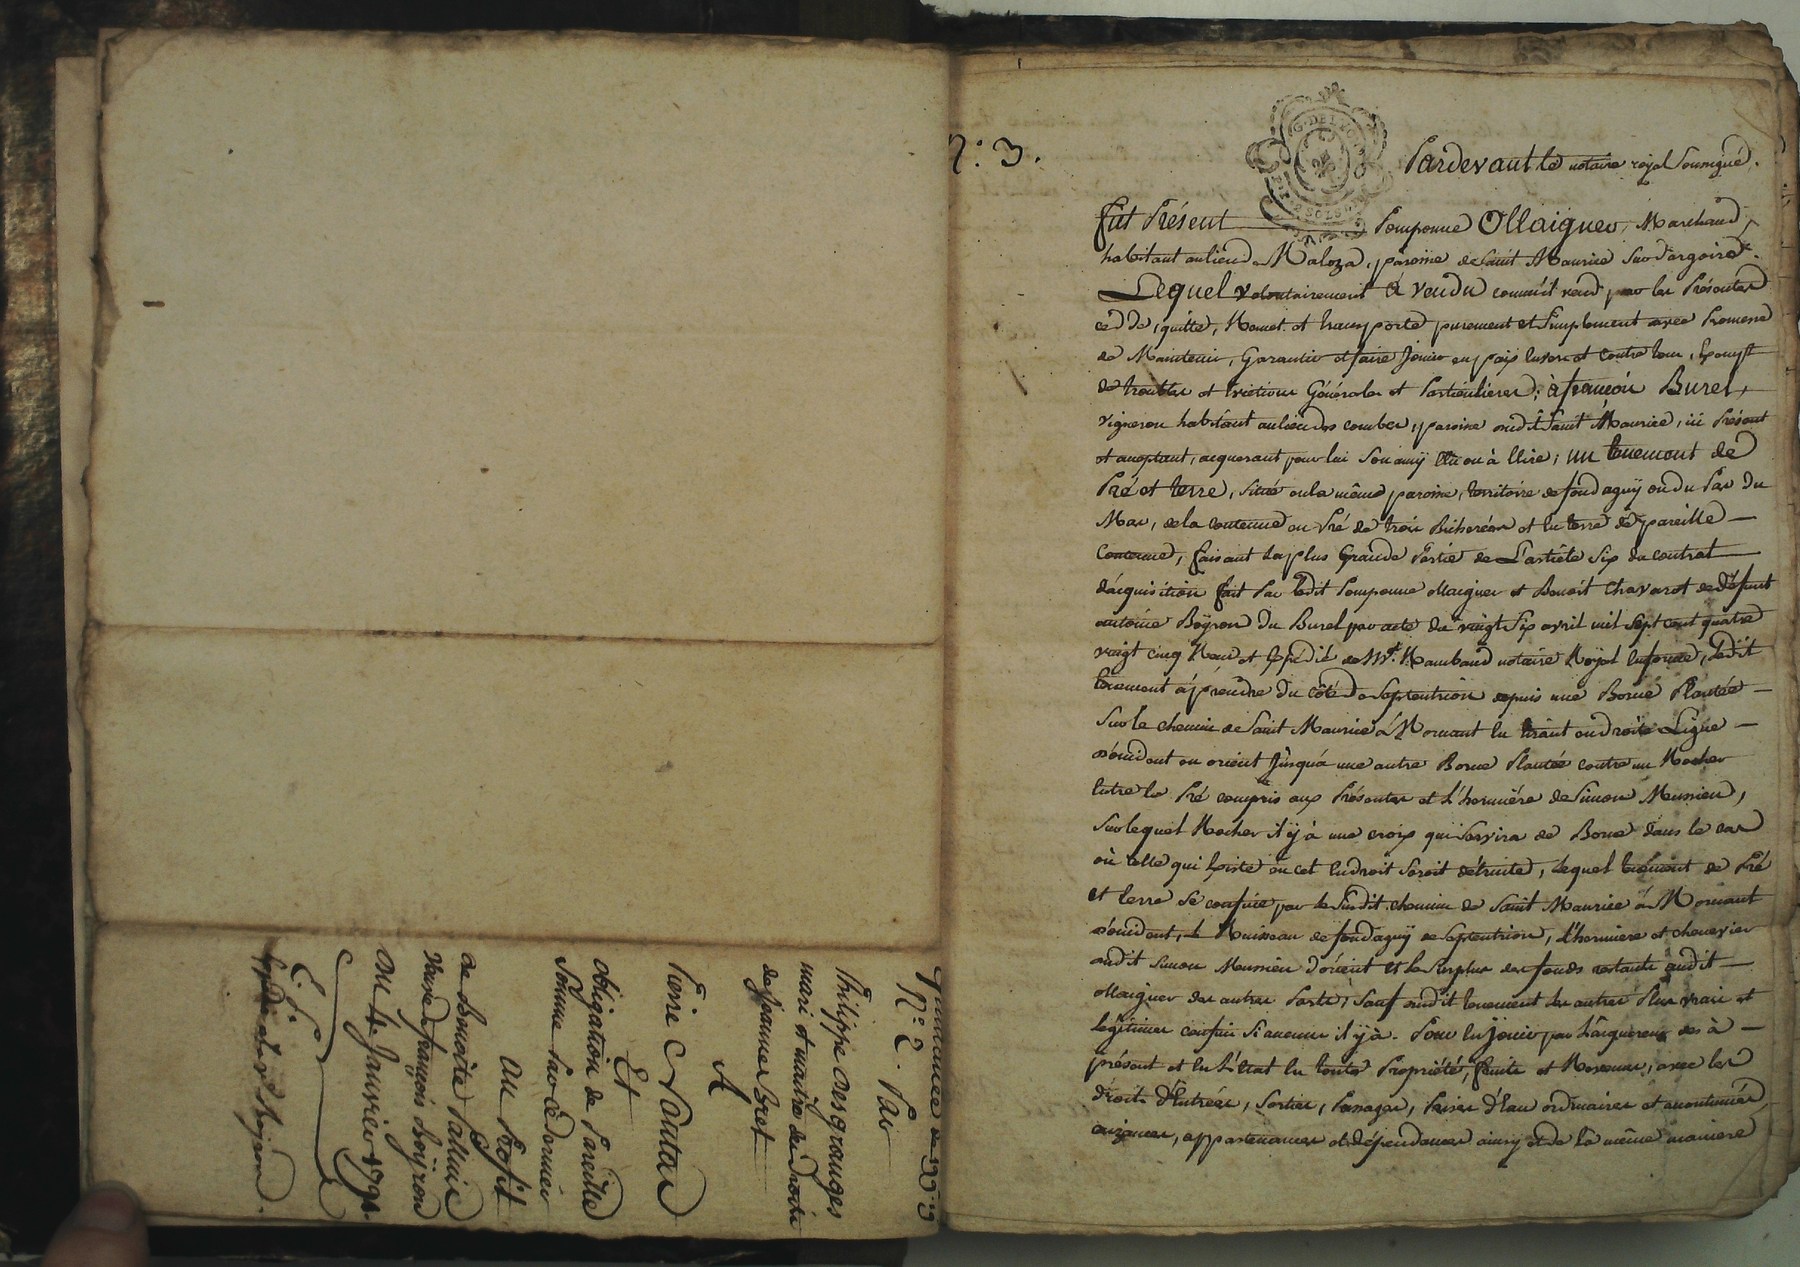 Quittance de
N.° 2. Par
Philippe Desgranges
mari et maitre des droits
de Jeanne Buet
A
Pierre
Et
obligation de Pareille
Somme Par Ce dernier
Au Profit
de Benoite
Veuve de françois boÿron
Du Janvier 179
N.° 3.
Pardevant le notaire royal Soussigné.
fut Présent Pomponne Ollaignier, Marchand,
habitant au lieu de Maloza, paroisse de Saint Maurice Sur dargoire.
Lequel volontairement à vendu comm'il vend par les Présentes
cedde, quitte, Remet et transporte purement et Simplement avec Promesse
de Maintenir, Garantir et faire Jouir en paix envers et contre tous,
de troubles et evictions Générales et Particulières; à françois Burel,
vigneron habitant au lieu des combes, paroisse dudit Saint Maurice, ici Présent
et acceptant, acquerant pour lui Son amÿ élu ou à élire, un tenement de
Pré et terre, Situé en la même paroisse, territoire de fondaguÿ ou du Pas du
Mas, de la contenue en Pré de trois Bicherées et en terre de pareille
Contenue, faisant la plus Grande Partie de L'article Six du contrat
d'acquisition fait Par ledit Pomponne ollaignier et Benoit Chavarot de Défunt
antoine Boÿron du Burel par acte du vingt Six avril mil Sept cent quatre
vingt cinq Recu et Expédié de M.e Rambaud notaire Royal, ledit
tenement à prendre du côté de Septentrion depuis une Borne Plantée
Sur le chemin de Saint Maurice à Mornant en tirant en droite Ligne
d'occident en orient Jusqu'à une autre Borne Plantée contre un Rocher
Entre le Pré compris aux Présentes et L'hermière de Simon Meunier,
Sur lequel Rocher il ÿ à une croix qui Servira de Borne dans le cas
où celle qui Existe en cet Endroit Seroit détruite, Lequel tenement de Pré
et terre Se confine par le Susdit chemin de Saint Maurice à Mornant
d'occident, le Ruisseau de fondaguÿ de Septentrion, L'hermiere et chenevier
dudit Simon Meunier d'orient et le Surplus des fonds restants audit
ollaignier des autres Parts, Sauf dudit tenement les autres Plus vrais et
Légitimes confins Si aucuns il ÿ à. Pour en jouir par L'acquereur des à
présent et en L'Etat en toute Propriété, fruits et Revenus, avec les
droits d'Entrées, Sorties, Passages, Prises d'Eau ordinaires et accoutumés,
aizances, appartenances et dépendances ainsy et de la même maniere